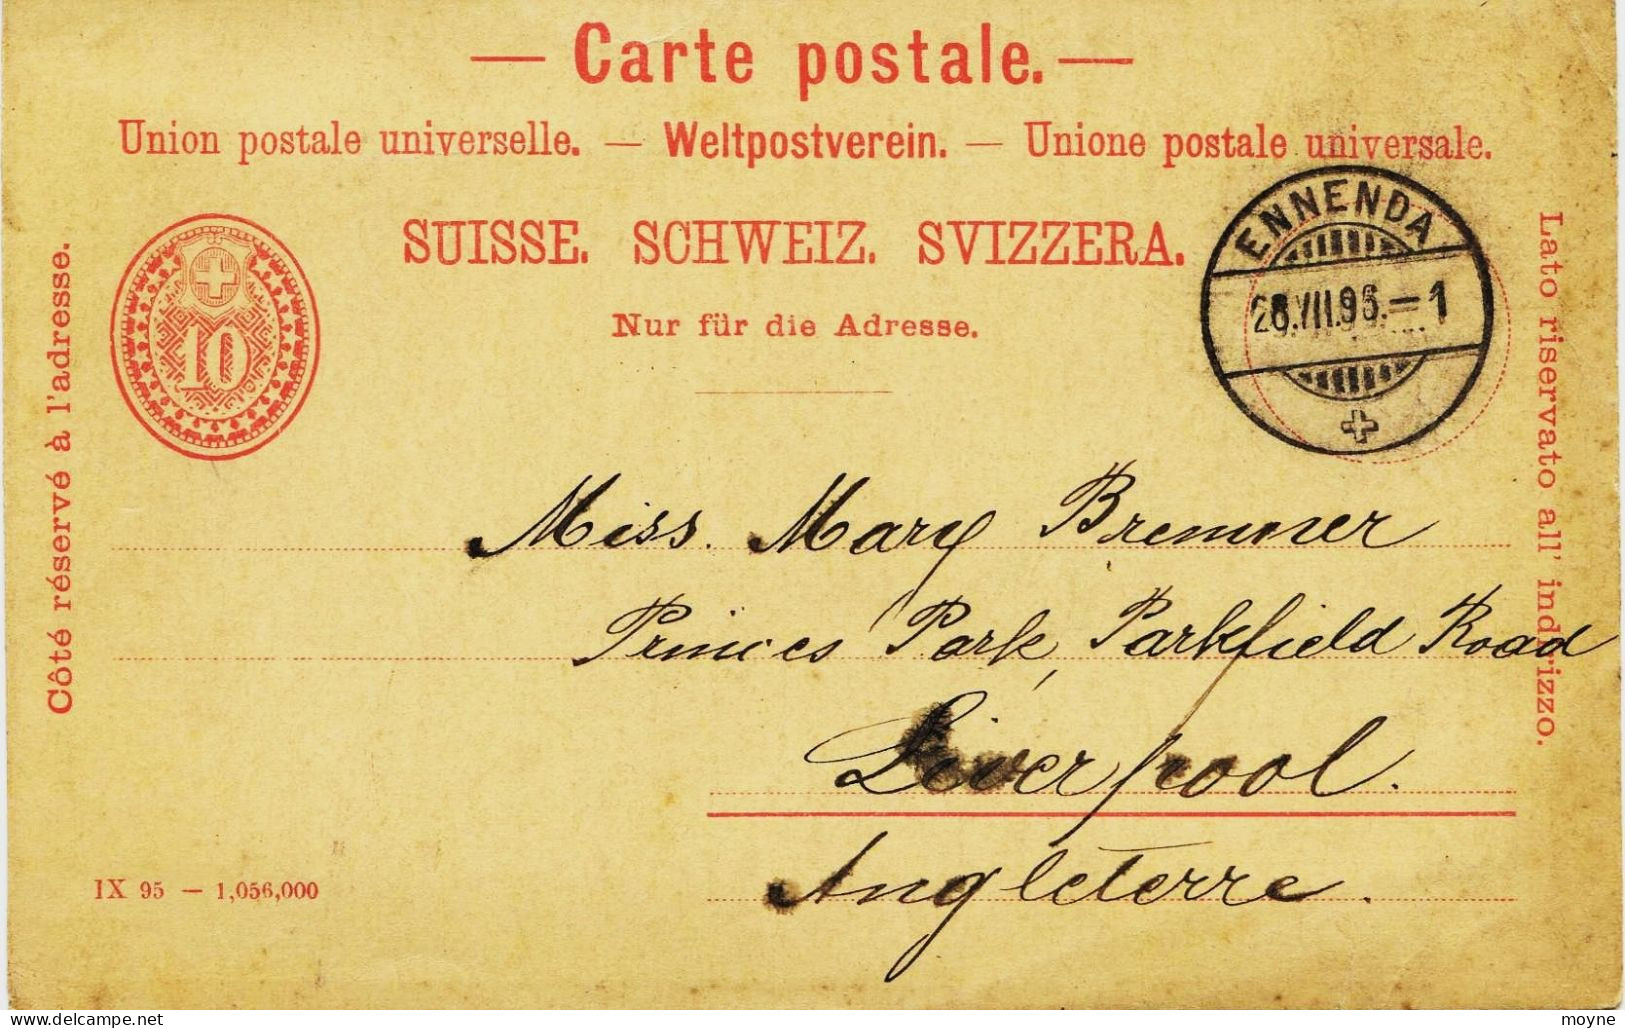 — Carte postale. —
Union postale universelle. — Weltpostverein. — Unione postale universale.
SUISSE. SCHWEIZ. SVIZZERA.
Nur für die Adresse.
Côté réservé à l'adresse.
10
ENNENDA
VII.96.—1
Lato riservato all' indirizzo.
Miss. Mary Bremner
Princes Park, Parkfield Road
Liverpool.
Angleterre.
IX 95 — 1,056,000
delcampe.net
moyne